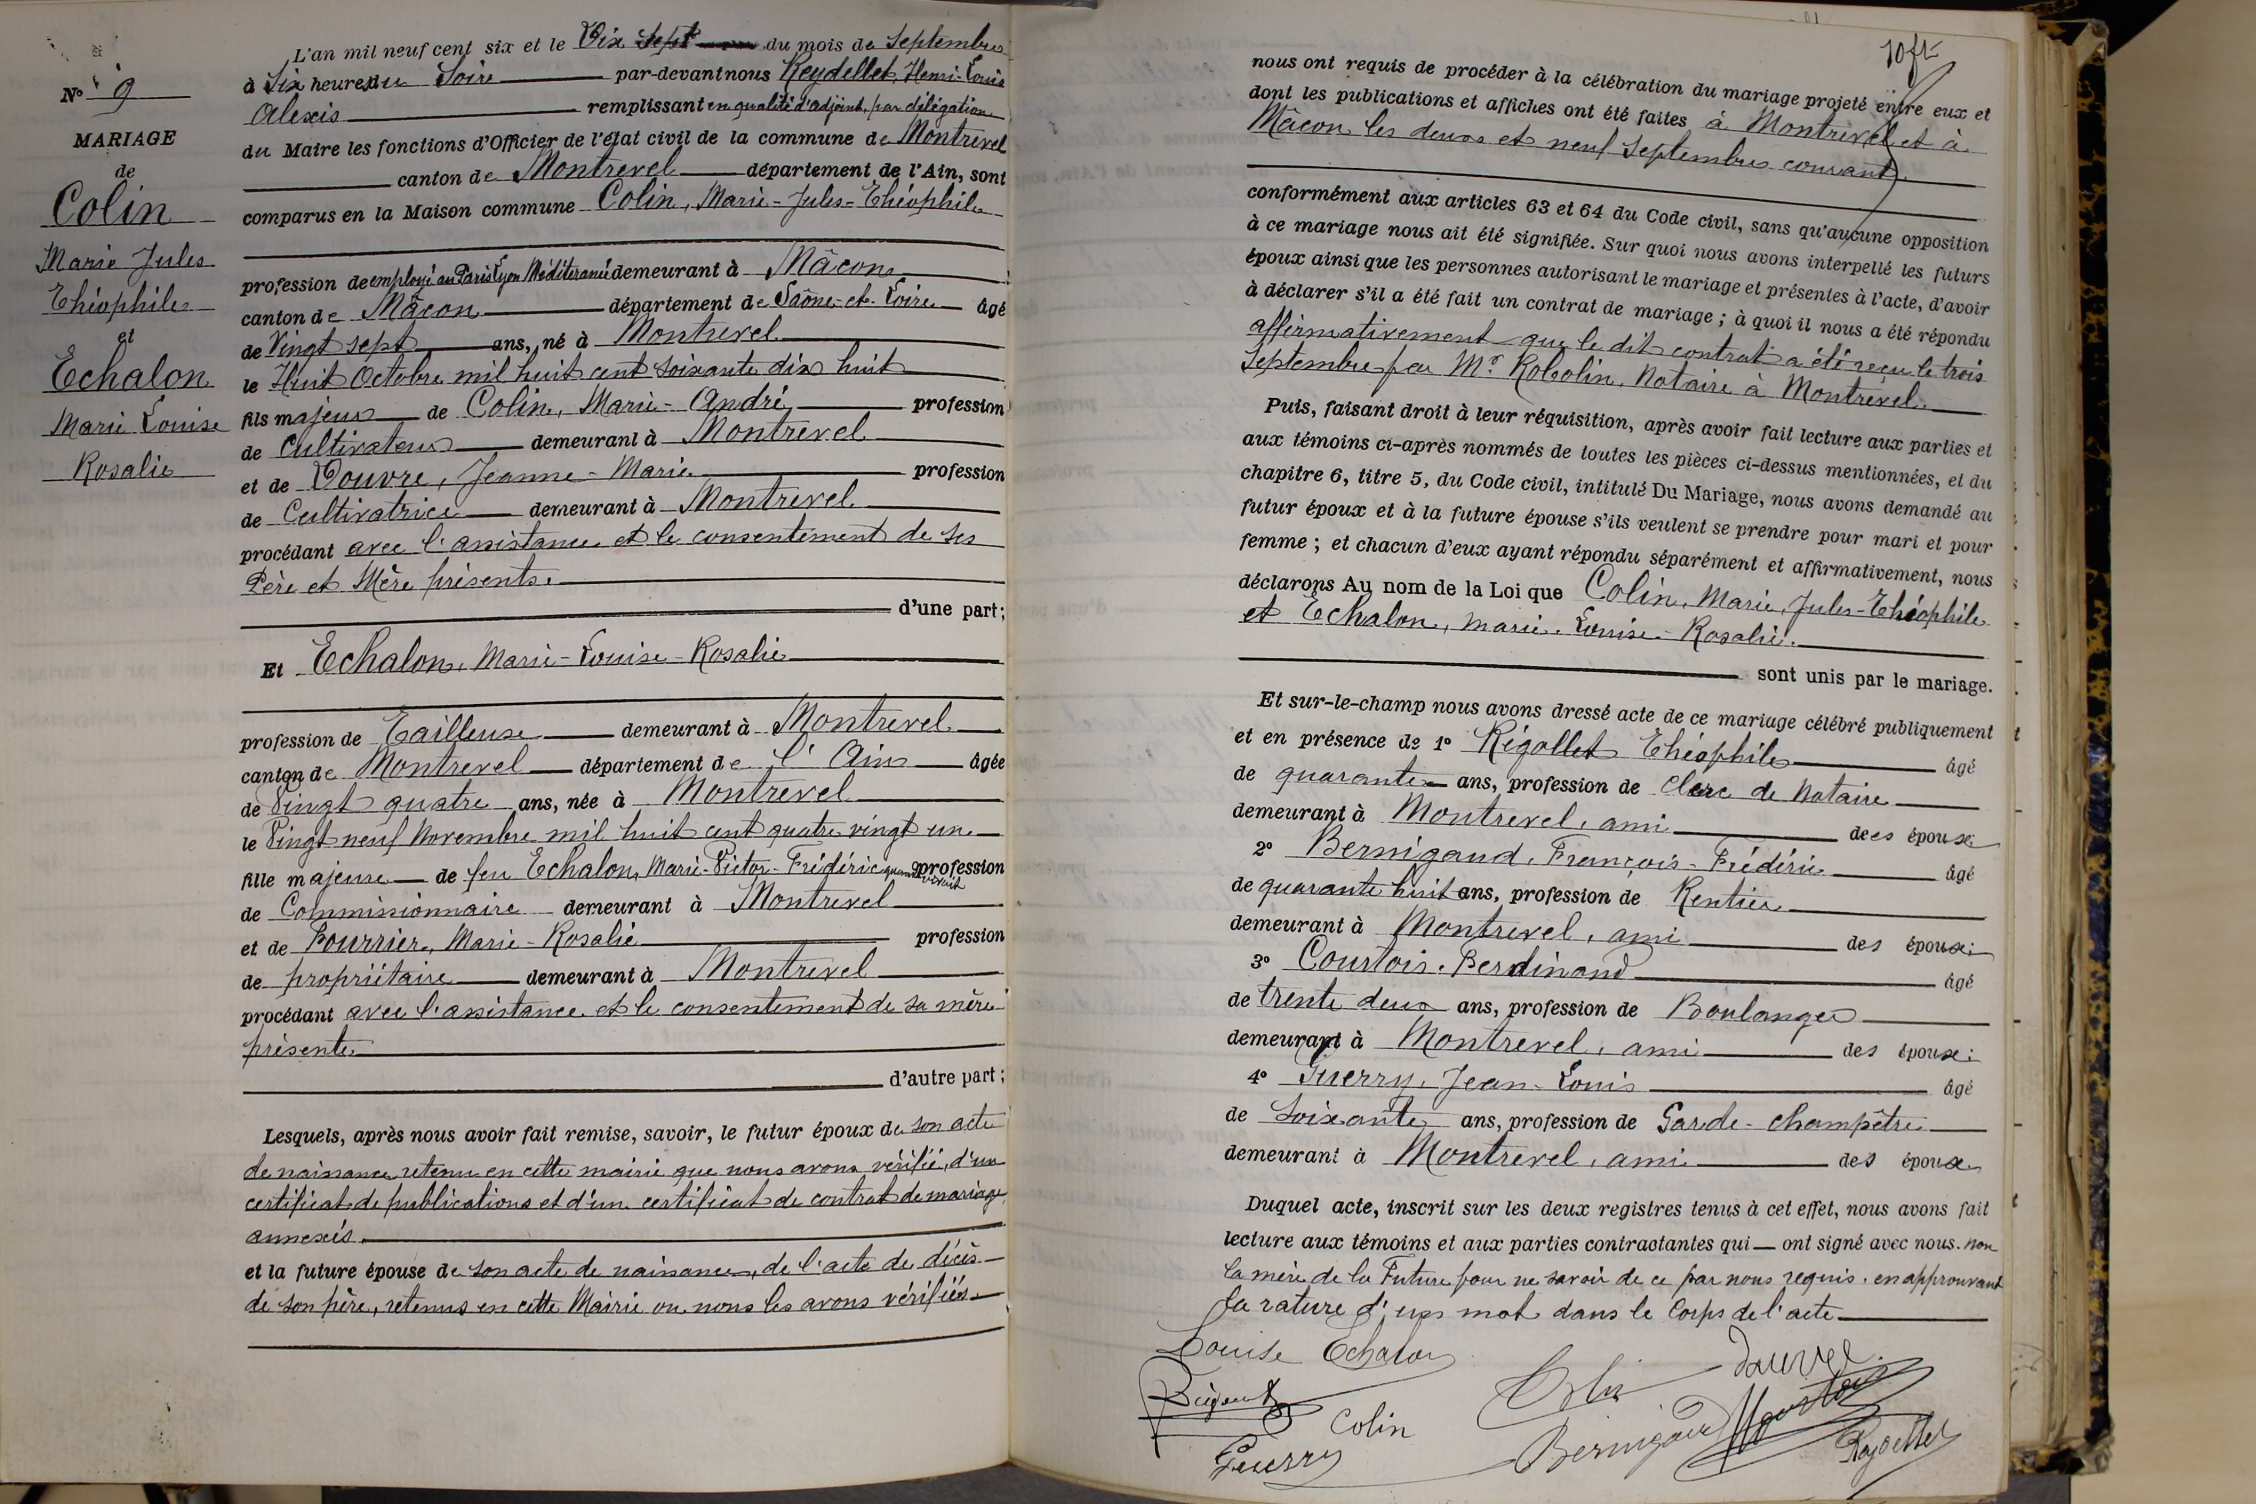 N° 9
MARIAGE
de
Colin
Marie Jules
Théophile
et
Echalon
Marie Louise
Rosalie
L'an mil neuf cent six et le Dix Sept du mois de Septembre
à Six heures du Soir par-devant nous Reydellet, Henri-Louis
Alexis remplissant en qualité d'adjoint, par délégation
du Maire les fonctions d'Officier de l'état civil de la commune de Montrevel
canton de Montrevel département de l'Ain, sont
comparus en la Maison commune Colin, Marie-Jules-Théophile
profession de employé au Paris Lyon Méditerranée demeurant à Mâcon
canton de Mâcon département de Saône-et-Loire âgé
de Vingt sept ans, né à Montrevel
le Huit Octobre mil huit cent soixante dix huit
fils majeur de Colin, Marie-André profession
de Cultivateur demeurant à Montrevel
et de Douvre, Jeanne-Marie profession
de Cultivatrice demeurant à Montrevel
procédant avec l'assistance et le consentement de ses
Père et Mère présents.
d'une part;
Et Echalon, Marie-Louise-Rosalie
profession de Tailleuse demeurant à Montrevel
canton de Montrevel département de l'Ain âgée
de Vingt quatre ans, née à Montrevel
le Vingt neuf Novembre mil huit cent quatre vingt un
fille majeure de feu Echalon, Marie-Victor-Frédéric quand vivait profession
de Commissionnaire demeurant à Montrevel
et de Fourrier, Marie-Rosalie profession
de propriétaire demeurant à Montrevel
procédant avec l'assistance et le consentement de sa mère
présente.
d'autre part;
Lesquels, après nous avoir fait remise, savoir, le futur époux de son acte
de naissance retenu en cette mairie que nous avons vérifié, d'un
certificat de publications et d'un certificat de contrat de mariage
annexés.
et la future épouse de son acte de naissance, de l'acte de décès
de son père, retenus en cette Mairie ou nous les avons vérifiés.
10 ft
nous ont requis de procéder à la célébration du mariage projeté entre eux et
dont les publications et affiches ont été faites à Montrevel et à
Mâcon les deux et neuf Septembre courant.
conformément aux articles 63 et 64 du Code civil, sans qu'aucune opposition
à ce mariage nous ait été signifiée. Sur quoi nous avons interpellé les futurs
époux ainsi que les personnes autorisant le mariage et présentes à l'acte, d'avoir
à déclarer s'il a été fait un contrat de mariage; à quoi il nous a été répondu
affirmativement que le dit contrat a été reçu le trois
Septembre par Me Robolin, Notaire à Montrevel.
Puis, faisant droit à leur réquisition, après avoir fait lecture aux parties et
aux témoins ci-après nommés de toutes les pièces ci-dessus mentionnées, et du
chapitre 6, titre 5, du Code civil, intitulé Du Mariage, nous avons demandé au
futur époux et à la future épouse s'ils veulent se prendre pour mari et pour
femme; et chacun d'eux ayant répondu séparément et affirmativement, nous
déclarons Au nom de la Loi que Colin, Marie, Jules-Théophile
et Echalon, Marie-Louise-Rosalie.
sont unis par le mariage.
Et sur-le-champ nous avons dressé acte de ce mariage célébré publiquement
et en présence de 1° Rigollet Théophile âgé
de quarante ans, profession de Clerc de Notaire
demeurant à Montrevel, ami des époux
2° Bernigaud, François-Frédéric âgé
de quarante huit ans, profession de Rentier
demeurant à Montrevel, ami des époux;
3° Courtois, Ferdinand âgé
de trente deux ans, profession de Boulanger
demeurant à Montrevel, ami des époux;
4° Guerry, Jean-Louis âgé
de Soixante ans, profession de Garde-Champêtre
demeurant à Montrevel, ami des époux
Duquel acte, inscrit sur les deux registres tenus à cet effet, nous avons fait
lecture aux témoins et aux parties contractantes qui ont signé avec nous. non
la mère de la Future pour ne savoir de ce par nous requis. en approuvant
la rature d'un mot dans le Corps de l'acte
Louise Echalon
Colin Douvre
Colin
Guerry Bernigaud Courtois Reydellet